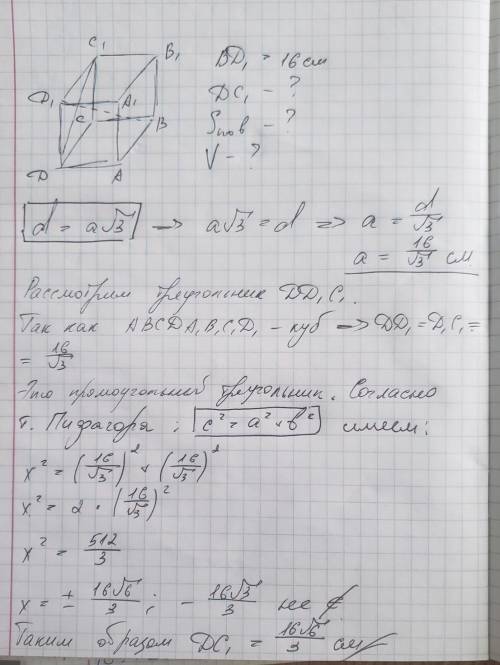 C₁ B₁
D₁ A₁
C B
D A
BD₁ = 16 см
DC₁ - ?
Sпов - ?
V - ?
d = a√3 → a√3 = d ⇒ a = d/√3
a = 16/√3 см
Рассмотрим треугольник DD₁C₁.
Так как ABCDA₁B₁C₁D₁ - куб → DD₁ = D₁C₁ =
= 16/√3
Это прямоугольный треугольник. Согласно
т. Пифагора: c² = a² + b² имеем:
x² = (16/√3)² + (16/√3)²
x² = 2 · (16/√3)²
x² = 512/3
x = ± 16√6/3 ; - 16√3/3 не
Таким образом DC₁ = 16√6/3 см